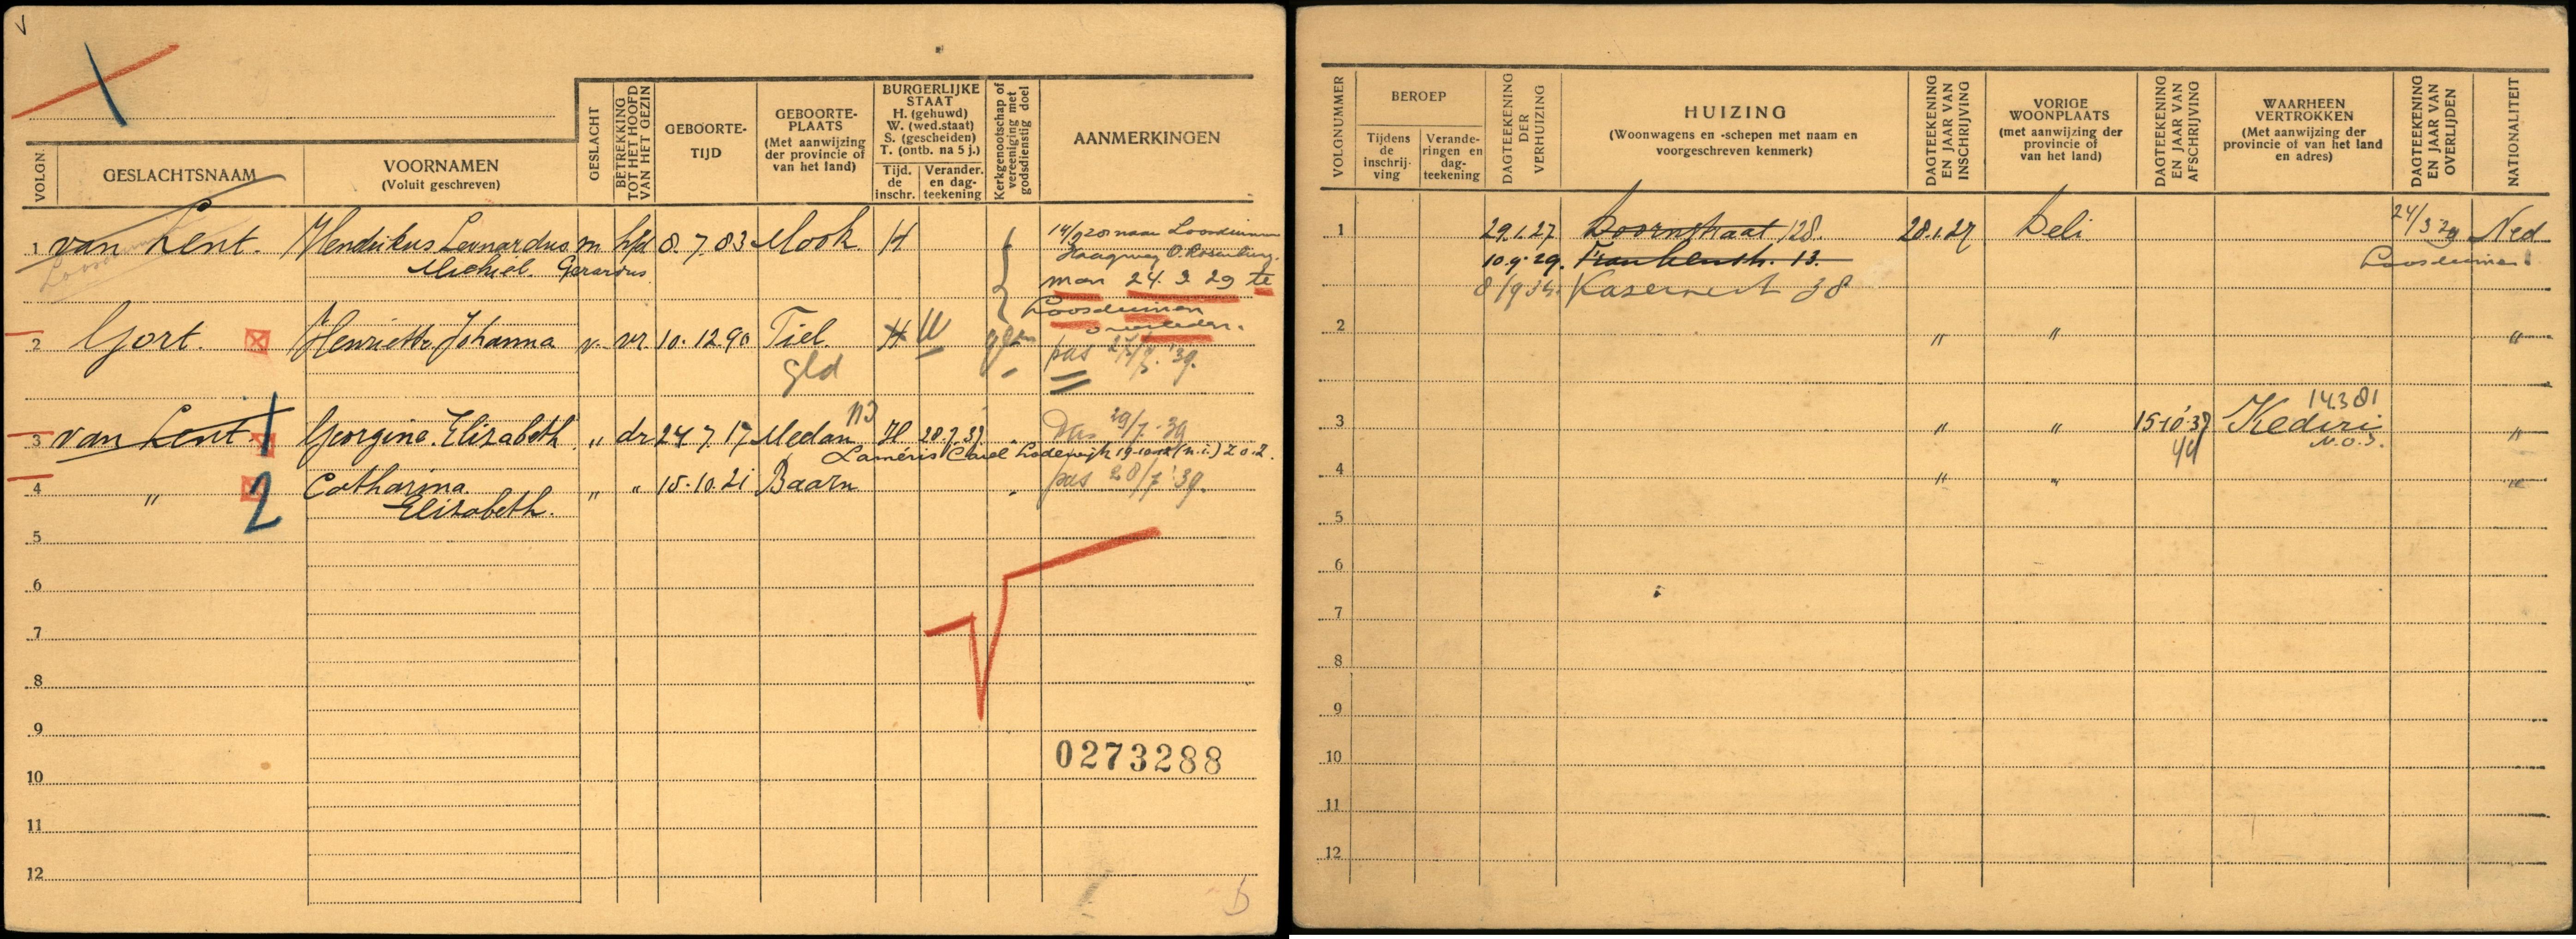 VOLGN.
GESLACHTSNAAM
VOORNAMEN
(Voluit geschreven)
GESLACHT
BETREKKING
TOT HET HOOFD
VAN HET GEZIN
GEBOORTE-
TIJD
GEBOORTE-
PLAATS
(Met aanwijzing
der provincie of
van het land)
BURGERLIJKE
STAAT
H. (gehuwd)
W. (wed.staat)
S. (gescheiden)
T. (ontb. na 5 j.)
Tijd.
de
inschr.
Verander.
en dag-
teekening
Kerkgenootschap of
vereeniging met
godsdienstig doel
AANMERKINGEN
1 van Lent. Hendrikus Leonardus m hfd 8.7.83 Mook H
Michiel. Gerardus
naar Loosduinen
Haagweg
man 24.3 29 te
Loosduinen
overleden.
2 Gort. Henriette Johanna v. vr. 10.12.90 Tiel. H W gem
gld
pas 27/7.'39.
3 van Lent. 1 Georgine Elisabeth " dr 24.7.17 Medan H 20.7.37
pas 29/7.39
Laméris Carel Lodewijk (n.i.)
4 " 2 Catharina " " 15.10.21 Baarn
Elisabeth.
pas 28/7'39.
5
6
7
8
9
0273288
10
11
12
VOLGNUMMER
BEROEP
Tijdens
de
inschrij-
ving
Verande-
ringen en
dag-
teekening
DAGTEEKENING
DER
VERHUIZING
HUIZING
(Woonwagens en -schepen met naam en
voorgeschreven kenmerk)
DAGTEEKENING
EN JAAR VAN
INSCHRIJVING
VORIGE
WOONPLAATS
(met aanwijzing der
provincie of
van het land)
DAGTEEKENING
EN JAAR VAN
AFSCHRIJVING
WAARHEEN
VERTROKKEN
(Met aanwijzing der
provincie of van het land
en adres)
DAGTEEKENING
EN JAAR VAN
OVERLIJDEN
NATIONALITEIT
1 29.1.27. Doornstraat 128. 28.1.27 Deli 24/3 29 Ned
10.9.29. Frankenstr. 13. Loosduinen.
8/9 34. Kasernest 38
2 " " "
3 " " 15-10-37 Kediri "
14381
N.O.I.
4 " " "
5
6
7
8
9
10
11
12